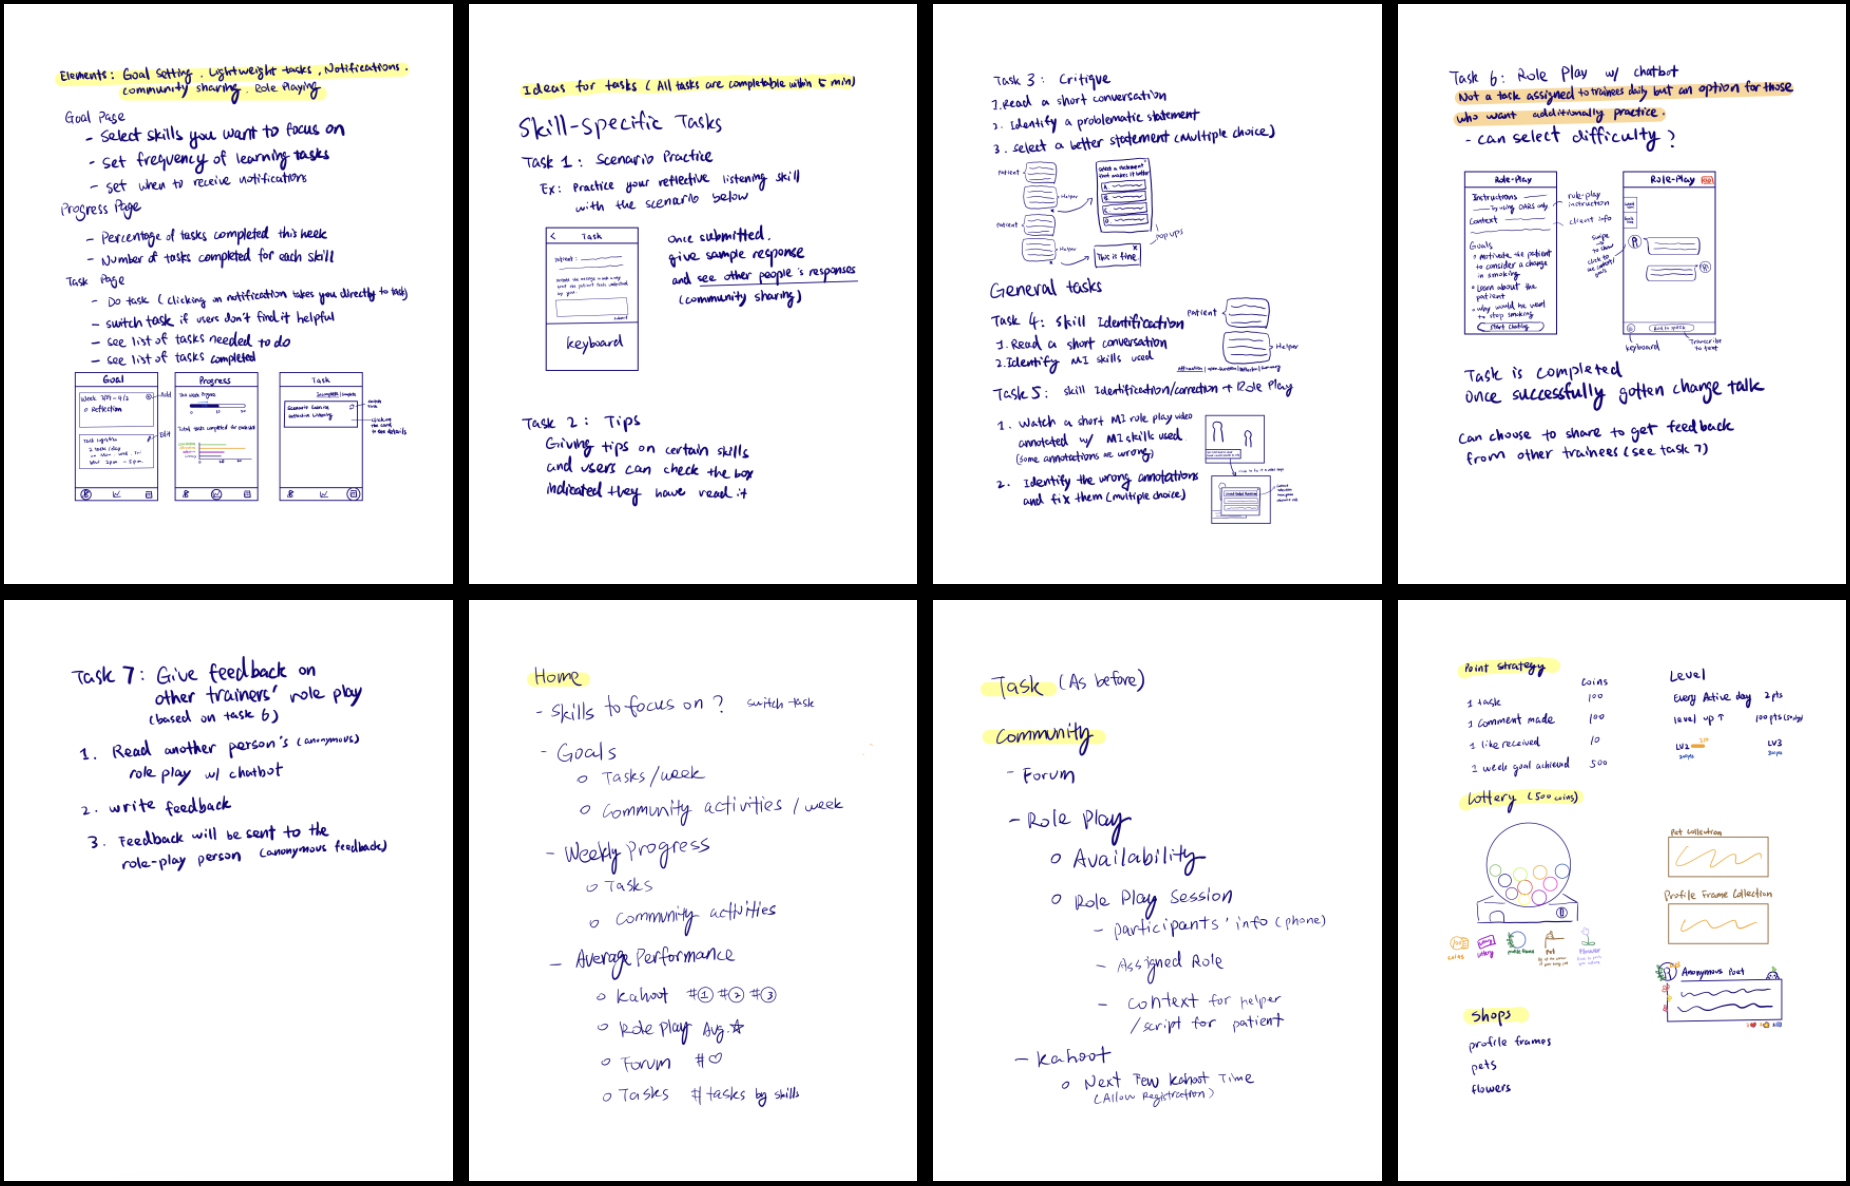 Elements: Goal Setting. Lightweight tasks, Notifications.
community sharing. Role Playing
Goal Page
- Select skills you want to focus on
- set frequency of learning tasks
- set when to receive notifications
Progress Page
- Percentage of tasks completed this week
- Number of tasks completed for each skill
Task Page
- Do task (clicking on notification takes you directly to task)
- switch task if users don't find it helpful
- see list of tasks needed to do
- see list of tasks completed
Goal
Progress
Task
o Reflection
Edit
Ideas for tasks (All tasks are completable within 5 min)
Skill-specific Tasks
Task 1: Scenario Practice
Ex: Practice your reflective listening skill
with the scenario below
< Task
patient:
submit
keyboard
once submitted.
give sample response
and see other people's responses
(community sharing)
Task 2: Tips
Giving tips on certain skills
and users can check the box
indicated they have read it
Task 3: Critique
1. Read a short conversation
2. Identify a problematic statement
3. select a better statement (multiple choice)
patient
Helper
patient
Helper
Select a statement
that makes it better
A
B
C
D
This is fine
pop ups
General tasks
Task 4: Skill Identification
1. Read a short conversation
2. Identify MI skills used
patient
Helper
Task 5: skill Identification/correction + Role Play
1. Watch a short MI role play video
annotated w/ MI skills used
(some annotations are wrong)
2. Identify the wrong annotations
and fix them (multiple choice)
Task 6: Role Play w/ chatbot
Not a task assigned to trainees daily but an option for those
who want additionally practice.
- can select difficulty?
Role-Play
Instructions
by using OARS only
Context
Goals
• motivate the patient
to consider a change
in smoking
• Learn about the
patient
• Why would he want
to stop smoking
start chatting
role-play
instruction
client info
Role-Play
keyboard
Transcribe
to text
Task is completed
once successfully gotten change talk
can choose to share to get feedback
from other trainees (see task 7)
Task 7: Give feedback on
other trainers' role play
(based on task 6)
1. Read another person's (anonymous)
role play w/ chatbot
2. write feedback
3. Feedback will be sent to the
role-play person (anonymous feedback)
Home
- Skills to focus on? switch task
- Goals
o Tasks/week
o Community activities / week
- Weekly Progress
o Tasks
o Community activities
- Average Performance
o Kahoot #① #② #③
o Role play Avg.☆
o Forum #♡
o Tasks # tasks by skills
Task (As before)
Community
- Forum
- Role Play
o Availability
o Role Play Session
- participants' info (phone)
- Assigned Role
- context for helper
/script for patient
- kahoot
o Next Few Kahoot Time
(Allow Registration)
Point strategy
coins
1 task 100
1 comment made 100
1 like received 10
1 week goal achieved 500
Level
Every Active day 2 pts
level up ↑ 100 pts
LV2
LV3
Lottery (500 coins)
coins
lottery
profile frame
pet
flower
Pet Collection
Profile Frame Collection
Anonymous Post
Shops
profile frames
pets
flowers